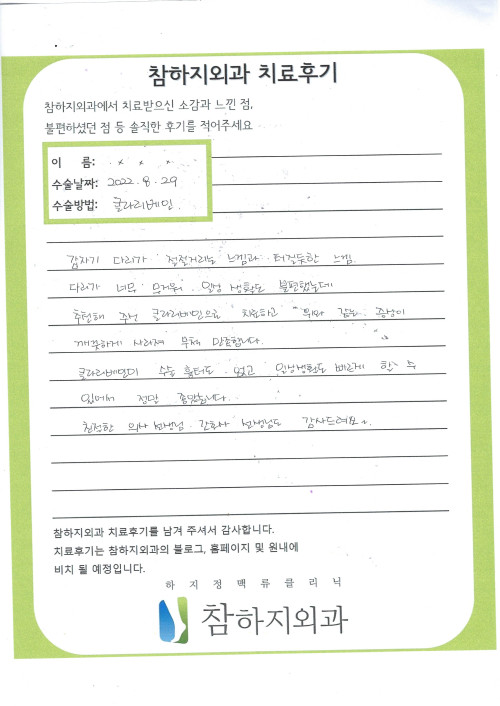 참하지외과 치료후기
참하지외과에서 치료받으신 소감과 느낀 점,
불편하셨던 점 등 솔직한 후기를 적어주세요
이 름: × × ×
수술날짜: 2022.8.29
수술방법: 클라리베인
갑자기 다리가 저릴거리는 느낌과 터질듯한 느낌.
다리가 너무 무거워 일상 생활도 불편했는데
추천해 주신 클라리베인으로 치료하고 위와 같은 증상이
깨끗하게 사라져 무척 만족합니다.
클라리베인이 수술 흉터도 없고 일상생활도 빠르게 할 수
있어서 정말 좋았습니다.
친절한 의사 선생님 간호사 선생님도 감사드려요~.
참하지외과 치료후기를 남겨 주셔서 감사합니다.
치료후기는 참하지외과의 블로그, 홈페이지 및 원내에
비치 될 예정입니다.
하지정맥류클리닉
참하지외과